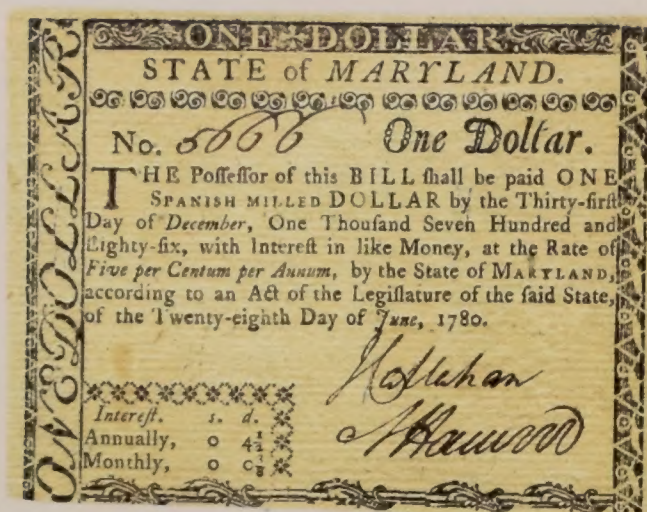 ONE DOLLAR
ONE DOLLAR
STATE of MARYLAND.
No. 5666 One Dollar.
THE Poſſeſſor of this BILL ſhall be paid ONE
SPANISH MILLED DOLLAR by the Thirty-firſt
Day of December, One Thouſand Seven Hundred and
Eighty-ſix, with Intereſt in like Money, at the Rate of
Five per Centum per Annum, by the State of MARYLAND,
according to an Act of the Legiſlature of the ſaid State,
of the Twenty-eighth Day of June, 1780.
J Callahan
N Harwood
Intereſt. s. d.
Annually, 0 4½
Monthly, 0 0⅜